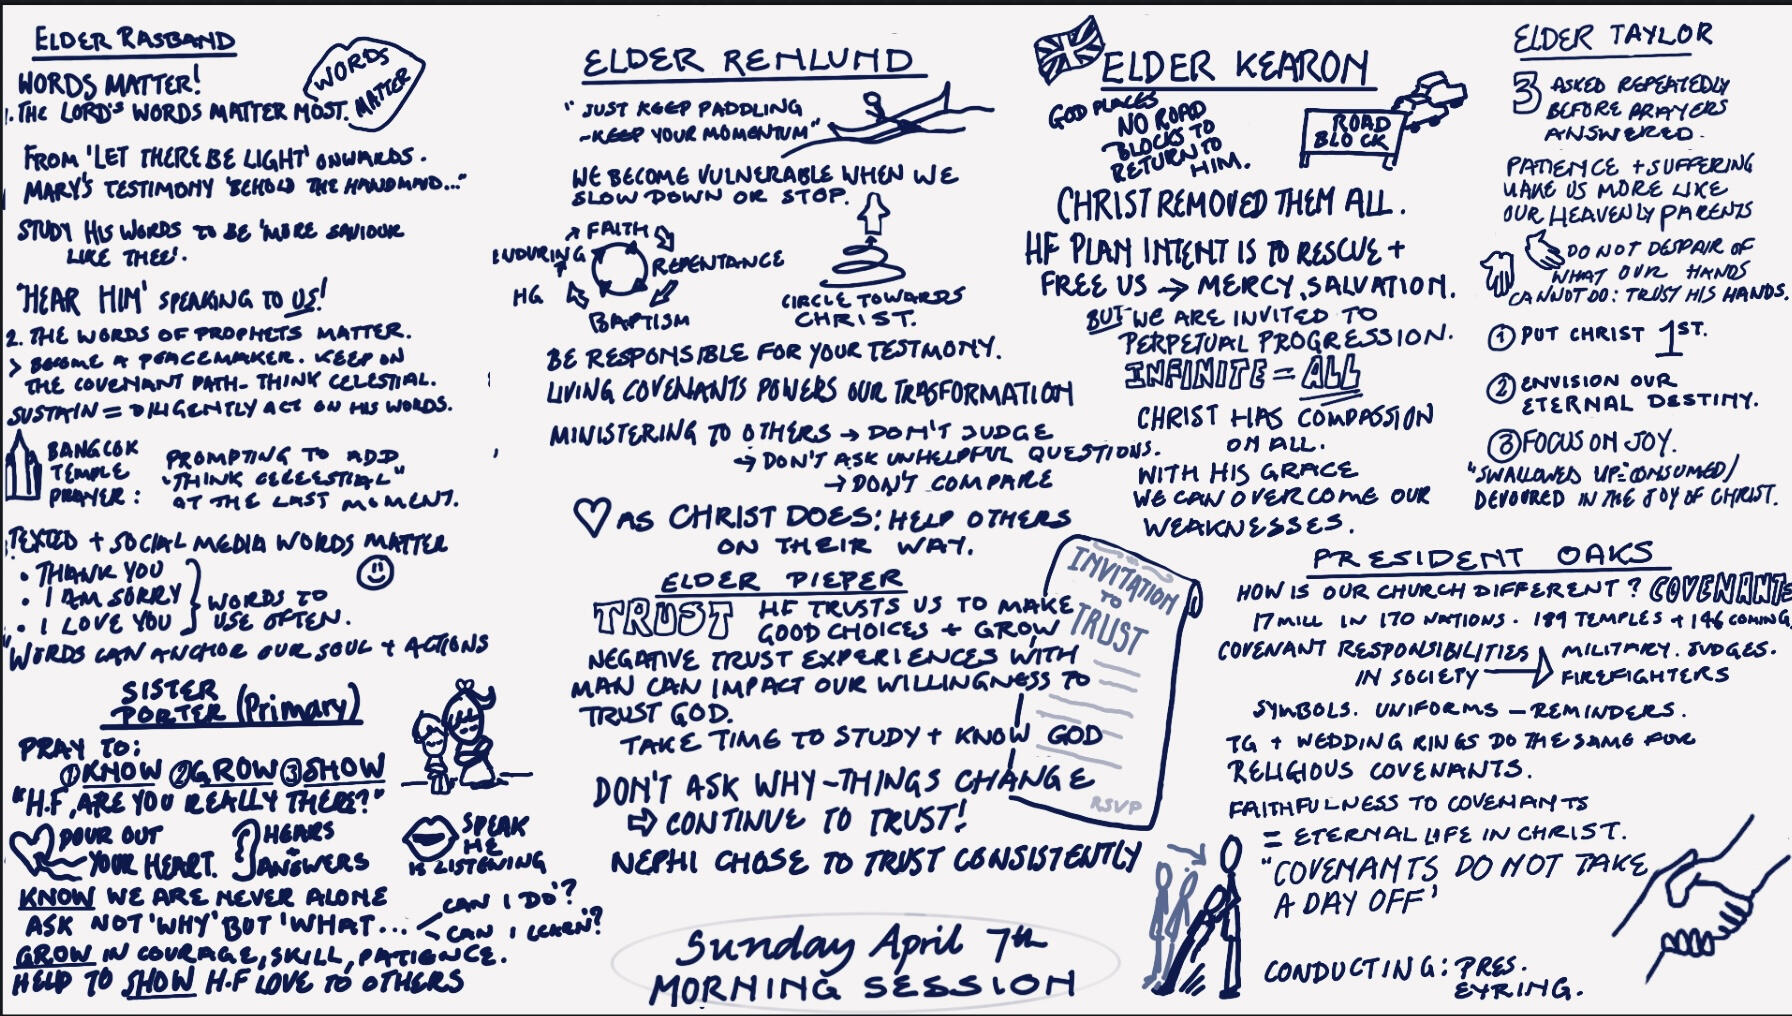 ELDER RASBAND
WORDS MATTER!
WORDS
MATTER
1. THE LORD'S WORDS MATTER MOST.
FROM 'LET THERE BE LIGHT' ONWARDS.
MARY'S TESTIMONY 'BEHOLD THE HANDMAID..."
STUDY HIS WORDS TO BE 'MORE SAVIOUR
LIKE THEE'.
'HEAR HIM' SPEAKING TO US!
2. THE WORDS OF PROPHETS MATTER.
> BECOME A PEACEMAKER. KEEP ON
THE COVENANT PATH - THINK CELESTIAL.
SUSTAIN = DILIGENTLY ACT ON HIS WORDS.
BANGCOK
TEMPLE
PRAYER:
PROMPTING TO ADD
"THINK CELESTIAL"
AT THE LAST MOMENT.
TEXTED + SOCIAL MEDIA WORDS MATTER
• THANK YOU
• I AM SORRY
• I LOVE YOU
WORDS TO
USE OFTEN.
"WORDS CAN ANCHOR OUR SOUL + ACTIONS
SISTER
PORTER (Primary)
PRAY TO:
① KNOW ② GROW ③ SHOW
"H.F, ARE YOU REALLY THERE?"
POUR OUT
YOUR HEART.
HEARS
+
ANSWERS
SPEAK
HE
IS LISTENING
KNOW WE ARE NEVER ALONE
ASK NOT 'WHY' BUT 'WHAT...
CAN I DO'?
CAN I LEARN'?
GROW IN COURAGE, SKILL, PATIENCE.
HELP TO SHOW H.F LOVE TO OTHERS
ELDER RENLUND
"JUST KEEP PADDLING
~KEEP YOUR MOMENTUM"
WE BECOME VULNERABLE WHEN WE
SLOW DOWN OR STOP.
→ FAITH
REPENTANCE
BAPTISM
HG
ENDURING
CIRCLE TOWARDS
CHRIST.
BE RESPONSIBLE FOR YOUR TESTMONY.
LIVING COVENANTS POWERS OUR TRASFORMATION
MINISTERING TO OTHERS → DON'T JUDGE
→ DON'T ASK UNHELPFUL QUESTIONS.
→ DON'T COMPARE
♡ AS CHRIST DOES: HELP OTHERS
ON THEIR WAY.
ELDER PIEPER
TRUST HF TRUSTS US TO MAKE
GOOD CHOICES + GROW
NEGATIVE TRUST EXPERIENCES WITH
MAN CAN IMPACT OUR WILLINGNESS TO
TRUST GOD.
TAKE TIME TO STUDY + KNOW GOD
DON'T ASK WHY - THINGS CHANGE
⇨ CONTINUE TO TRUST!
NEPHI CHOSE TO TRUST CONSISTENTLY
INVITATION
TO
TRUST
RSVP
Sunday April 7th
MORNING SESSION
ELDER KEARON
GOD PLACES
NO ROAD
BLOCKS TO
RETURN TO
HIM.
ROAD
BLOCK
CHRIST REMOVED THEM ALL.
HF PLAN INTENT IS TO RESCUE +
FREE US → MERCY, SALVATION.
BUT WE ARE INVITED TO
PERPETUAL PROGRESSION.
INFINITE = ALL
CHRIST HAS COMPASSION
ON ALL.
WITH HIS GRACE
WE CAN OVERCOME OUR
WEAKNESSES.
ELDER TAYLOR
3 ASKED REPEATEDLY
BEFORE PRAYERS
ANSWERED.
PATIENCE + SUFFERING
MAKE US MORE LIKE
OUR HEAVENLY PARENTS
DO NOT DESPAIR OF
WHAT OUR HANDS
CANNOT DO: TRUST HIS HANDS.
① PUT CHRIST 1ST.
② ENVISION OUR
ETERNAL DESTINY.
③ FOCUS ON JOY.
"SWALLOWED UP"= CONSUMED/
DEVOURED IN THE JOY OF CHRIST.
PRESIDENT OAKS
HOW IS OUR CHURCH DIFFERENT? COVENANTS
17 MILL IN 170 NATIONS. 189 TEMPLES + 146 COMING
COVENANT RESPONSIBILITIES
IN SOCIETY
MILITARY. JUDGES.
FIREFIGHTERS
SYMBOLS. UNIFORMS - REMINDERS.
TG + WEDDING RINGS DO THE SAME FOR
RELIGIOUS COVENANTS.
FAITHFULNESS TO COVENANTS
= ETERNAL LIFE IN CHRIST.
"COVENANTS DO NOT TAKE
A DAY OFF'
CONDUCTING: PRES.
EYRING.